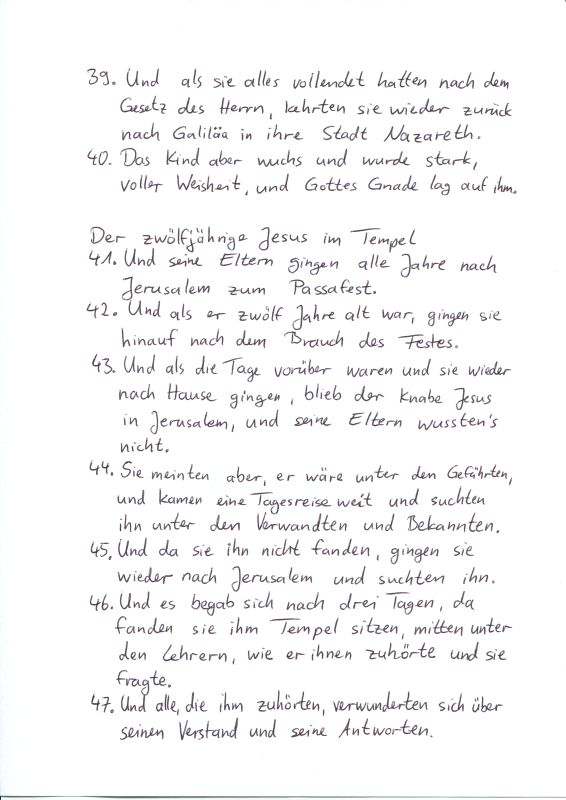 39. Und als sie alles vollendet hatten nach dem
Gesetz des Herrn, kehrten sie wieder zurück
nach Galiläa in ihre Stadt Nazareth.
40. Das Kind aber wuchs und wurde stark,
voller Weisheit, und Gottes Gnade lag auf ihm.
Der zwölfjährige Jesus im Tempel
41. Und seine Eltern gingen alle Jahre nach
Jerusalem zum Passafest.
42. Und als er zwölf Jahre alt war, gingen sie
hinauf nach dem Brauch des Festes.
43. Und als die Tage vorüber waren und sie wieder
nach Hause gingen, blieb der Knabe Jesus
in Jerusalem, und seine Eltern wussten's
nicht.
44. Sie meinten aber, er wäre unter den Gefährten,
und kamen eine Tagesreise weit und suchten
ihn unter den Verwandten und Bekannten.
45. Und da sie ihn nicht fanden, gingen sie
wieder nach Jerusalem und suchten ihn.
46. Und es begab sich nach drei Tagen, da
fanden sie ihm Tempel sitzen, mitten unter
den Lehrern, wie er ihnen zuhörte und sie
fragte.
47. Und alle, die ihm zuhörten, verwunderten sich über
seinen Verstand und seine Antworten.